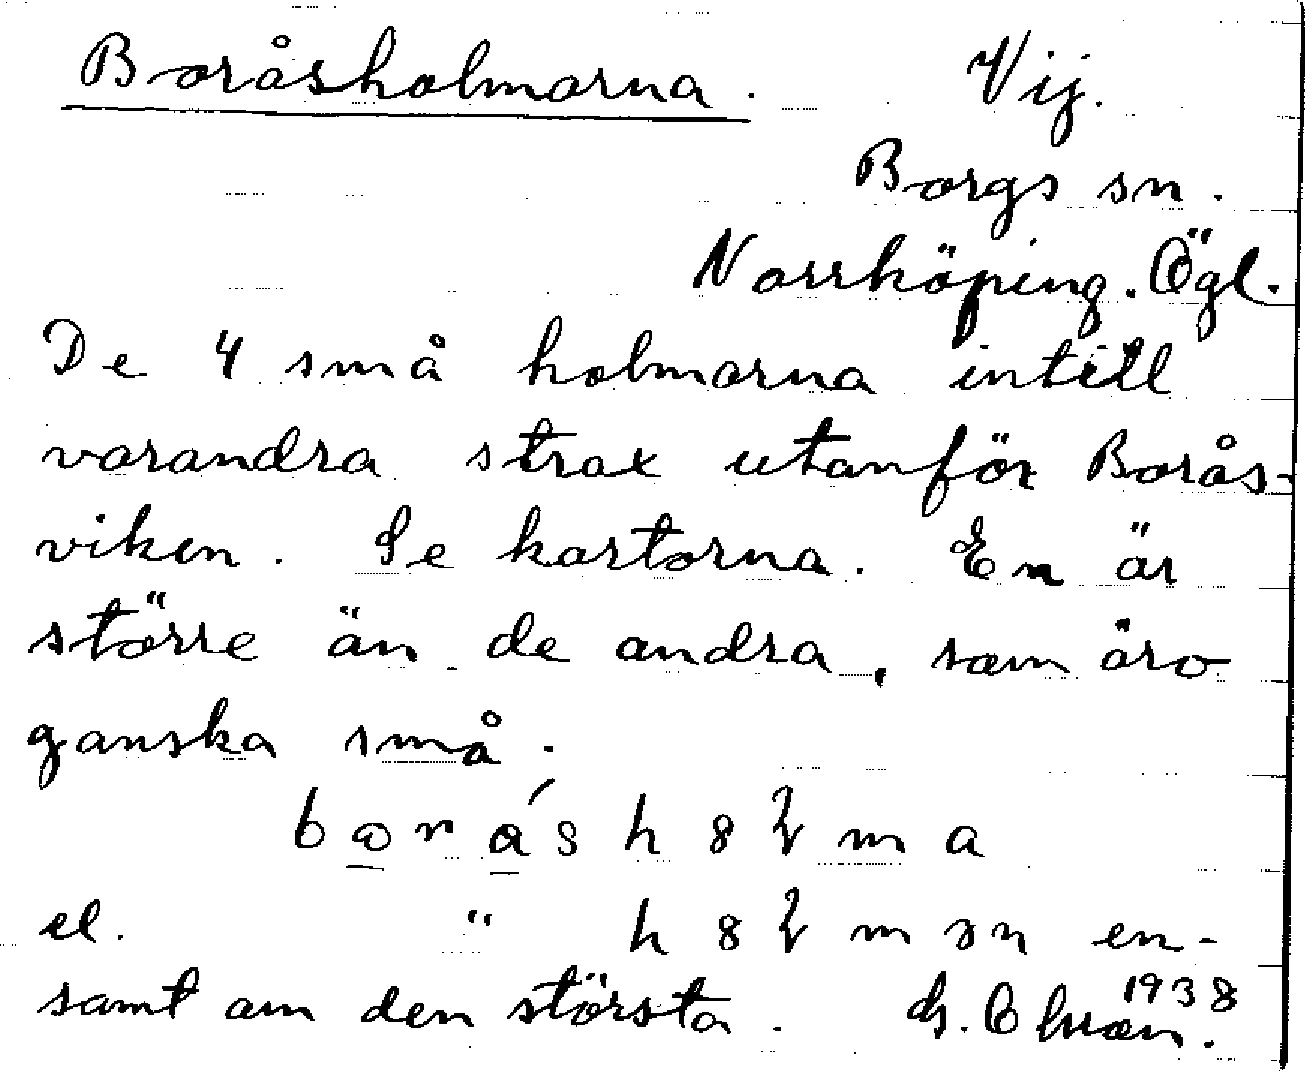 Boråsholmarna. Vij.
Borgs sn.
Norrköping. Ögl.
De 4 små holmarna intill
varandra strax utanför Borås-
viken. Se kartorna. En är
större än de andra, som äro
ganska små.
el. " en-
samt om den största. 1938